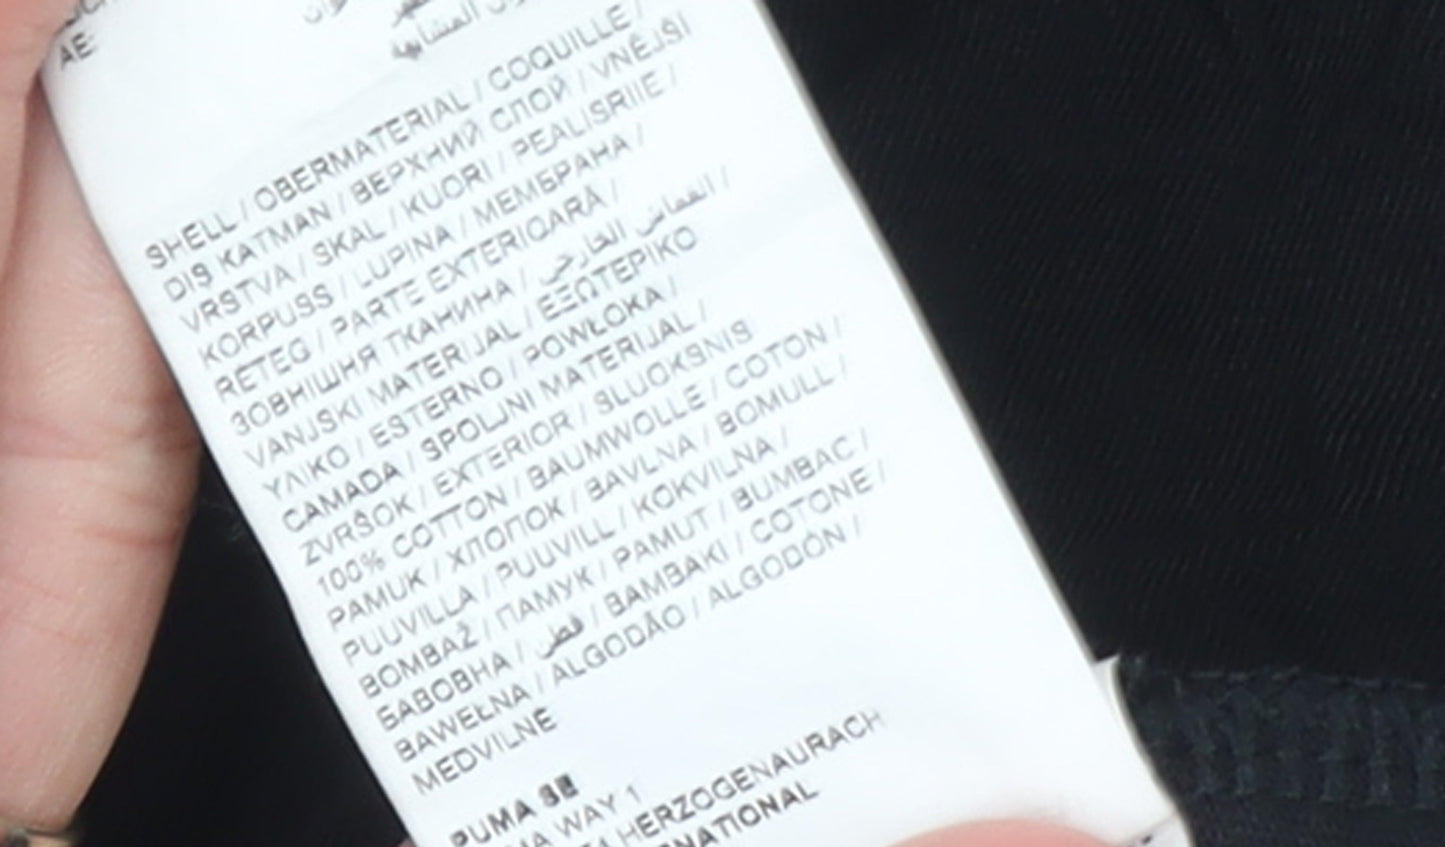 AE
المشابهة
SHELL / OBERMATERIAL / COQUILLE /
DIŞ KATMAN / ВЕРХНИЙ СЛОЙ / VNĚJŠÍ
VRSTVA / SKAL / KUORI / PEALISRIIE /
KORPUSS / LUPINA / МЕМБРАНА /
RETEG / PARTE EXTERIOARĂ /
ЗОВНІШНЯ ТКАНИНА / القماش الخارجي /
VANJSKI MATERIJAL / ΕΞΩΤΕΡΙΚΟ
ΥΛΙΚΟ / ESTERNO / POWŁOKA /
CAMADA / SPOLJNI MATERIJAL /
ZVRŠOK / EXTERIOR / SLUOKSNIS
100% COTTON / BAUMWOLLE / COTON /
PAMUK / ХЛОПОК / BAVLNA / BOMULL /
PUUVILLA / PUUVILL / KOKVILNA /
BOMBAŽ / ПАМУК / PAMUT / BUMBAC /
БАВОВНА / قطن / ΒΑΜΒΑΚΙ / COTONE /
BAWEŁNA / ALGODÃO / ALGODÓN /
MEDVILNĖ
PUMA SE
WAY 1
HERZOGENAURACH